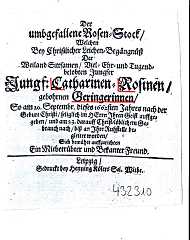 Der
umbgefallene Rosen-Stock/
Welchen
Bey Christlicher Leichen-Begängnüß
Der
Weiland Sittsamen/ Viel-Ehr-und Tugend-
belobten Jungfer
Jungf: Catharinen-Rosinen/
gebohrnen Geringerinnen/
So am 20. Septembr. dieses 1662sten Jahres nach der
Geburt Christi/ seeliglich im HErrn Ihren Geist auffge-
geben/ und am 23. darauff Christüblichem Ge-
brauch nach/ biß an Ihre Ruhstelle be-
gleitet worden/
Ein Mitbetrübter und Bekanter Freund.
Leipzig/
Gedruckt bey Henning Kölers Sel. Witbe.
432310